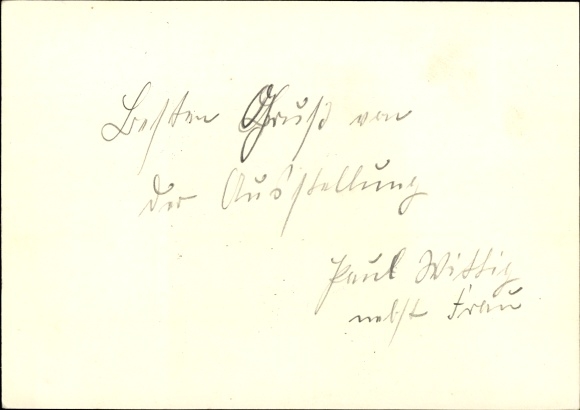 Besten Gruß von
der Ausstellung
Paul Wittig
nebst Frau